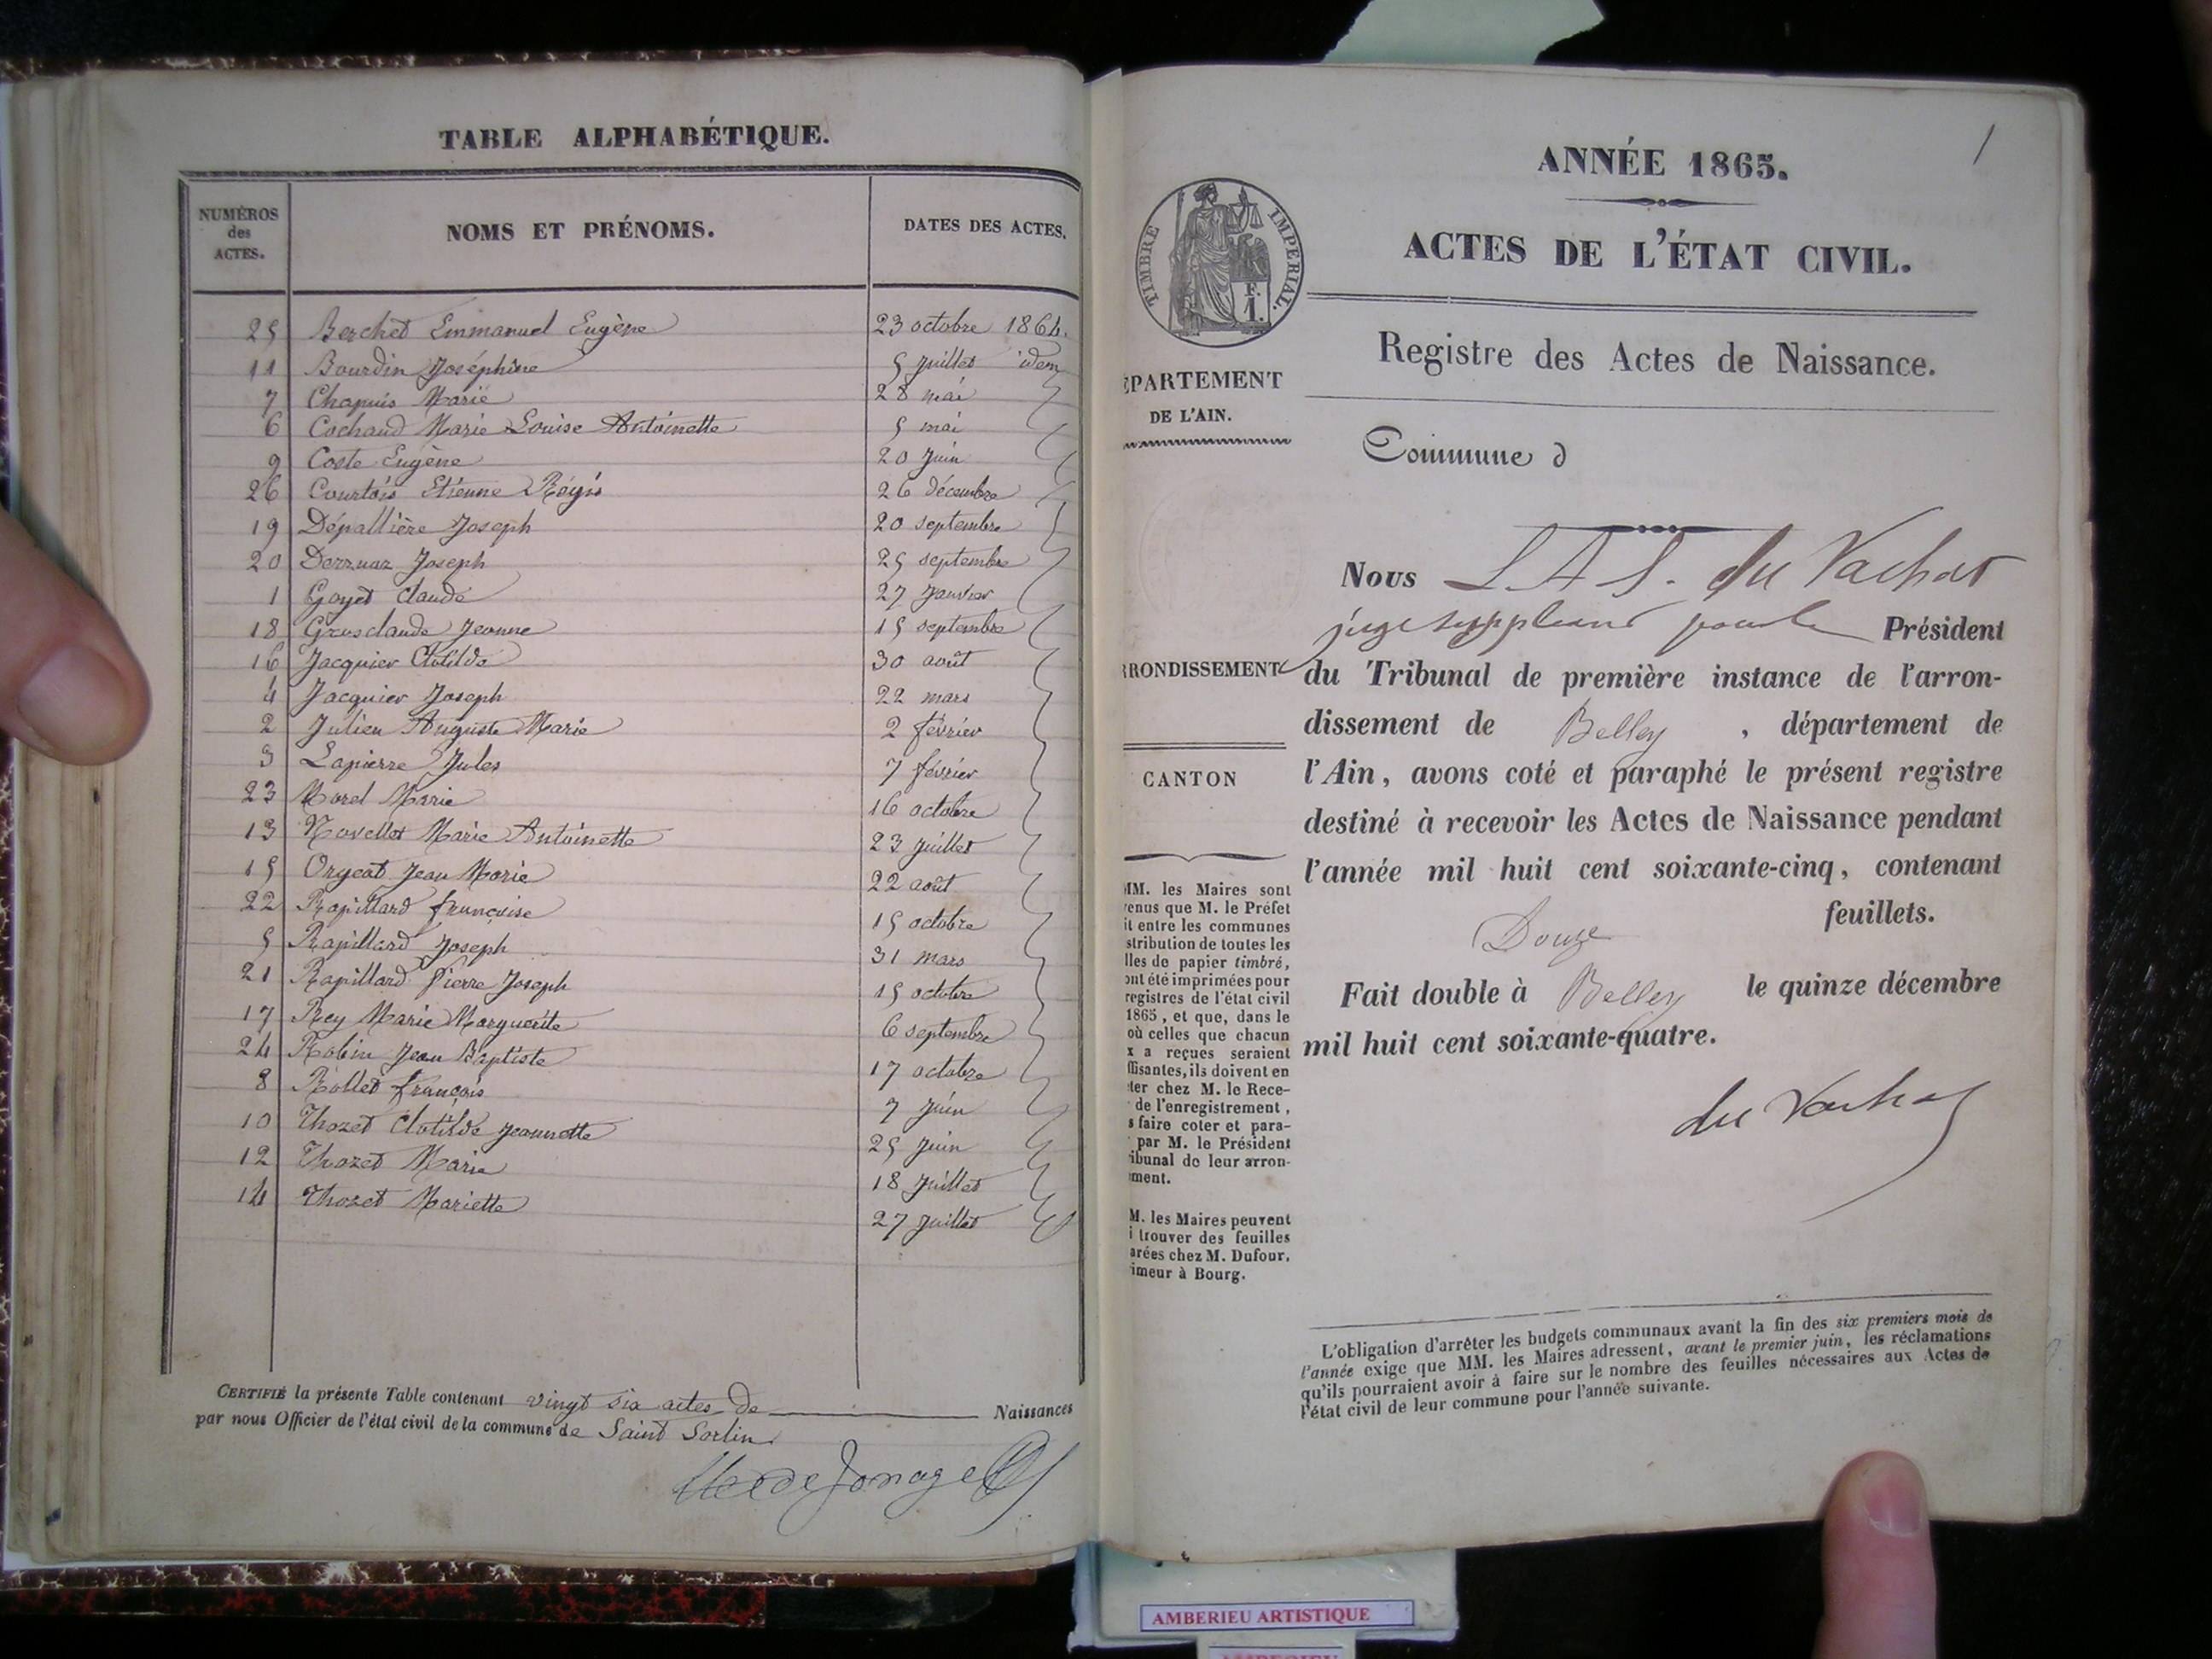 TABLE ALPHABÉTIQUE.
NUMÉROS des ACTES.
NOMS ET PRÉNOMS.
DATES DES ACTES.
25 Berchet Emmanuel Eugène 23 octobre 1864.
11 Bourdin Joséphine 5 juillet idem
7 Chapuis Marie 28 mai
6 Cochand Marie Louise Antoinette 5 mai
9 Coste Eugène 20 juin
26 Courtois Etienne Régis 26 décembre
19 Dépallière Joseph 20 septembre
20 Derruaz Joseph 25 septembre
1 Goyet Claude 27 janvier
18 Grosclaude Jeanne 15 septembre
16 Jacquier Clotilde 30 août
4 Jacquier Joseph 22 mars
2 Julien Auguste Marie 2 février
3 Lapierre Jules 7 février
23 Morel Marie 16 octobre
13 Novellet Marie Antoinette 23 juillet
15 Orgeat Jean Marie 22 août
22 Rapillard françoise 15 octobre
5 Rapillard Joseph 31 mars
21 Rapillard Pierre Joseph 15 octobre
17 Rey Marie Marguerite 6 septembre
24 Robin Jean Baptiste 17 octobre
8 Rollet françois 7 juin
10 Thozet Clotilde Jeannette 25 juin
12 Thozet Marie 18 juillet
14 Thozet Mariette 27 juillet
CERTIFIÉ la présente Table contenant vingt six actes de Naissances
par nous Officier de l'état civil de la commune de Saint Sorlin
de Jonage
1
ANNÉE 1865.
ACTES DE L'ÉTAT CIVIL.
TIMBRE IMPERIAL.
F.
1.
Registre des Actes de Naissance.
ÉPARTEMENT
DE L'AIN.
Commune d
Nous L. A. S. du Vachat
juge suppléant pour le Président
RRONDISSEMENT
du Tribunal de première instance de l'arron-
dissement de Belley, département de
CANTON
l'Ain, avons coté et paraphé le présent registre
destiné à recevoir les Actes de Naissance pendant
l'année mil huit cent soixante-cinq, contenant
Douze feuillets.
Fait double à Belley le quinze décembre
mil huit cent soixante-quatre.
du Vachat
MM. les Maires sont
enus que M. le Préfet
it entre les communes
stribution de toutes les
lles de papier timbré,
ont été imprimées pour
registres de l'état civil
1865, et que, dans le
où celles que chacun
x a reçues seraient
ffisantes, ils doivent en
ter chez M. le Rece-
de l'enregistrement,
s faire coter et para-
par M. le Président
ibunal de leur arron-
ment.
M. les Maires peuvent
i trouver des feuilles
arées chez M. Dufour,
imeur à Bourg.
L'obligation d'arrêter les budgets communaux avant la fin des six premiers mois de
l'année exige que MM. les Maires adressent, avant le premier juin, les réclamations
qu'ils pourraient avoir à faire sur le nombre des feuilles nécessaires aux Actes de
l'état civil de leur commune pour l'année suivante.
AMBERIEU ARTISTIQUE
AMBERIEU